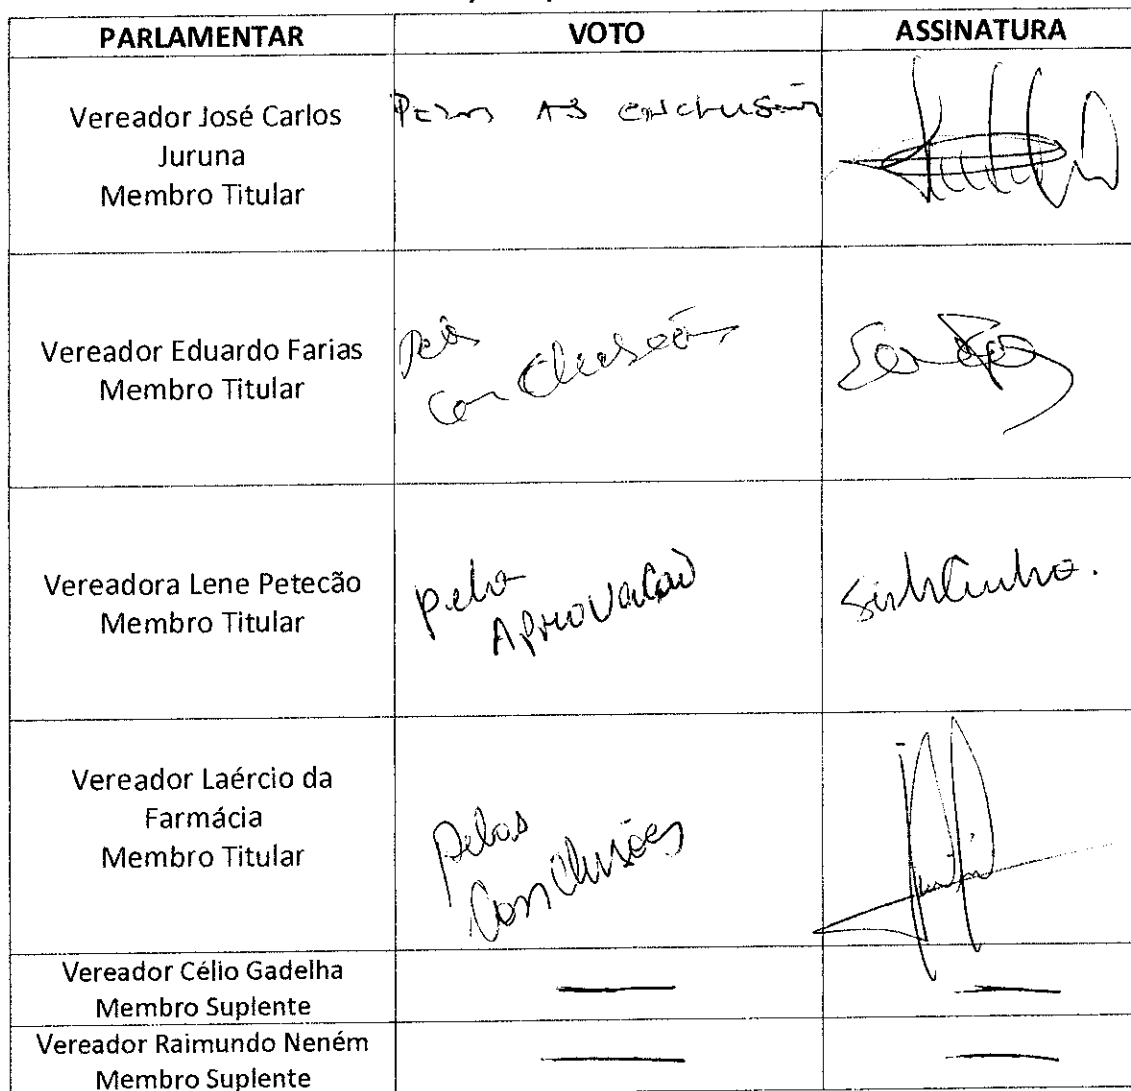 PARLAMENTAR VOTO ASSINATURA
Vereador José Carlos
Juruna
Membro Titular
AS
Vereador Eduardo Farias
Membro Titular
Vereadora Lene Petecão
Membro Titular
pela
Aprovação
Vereador Laércio da
Farmácia
Membro Titular
pelas
Conclusões
Vereador Célio Gadelha
Membro Suplente
Vereador Raimundo Neném
Membro Suplente